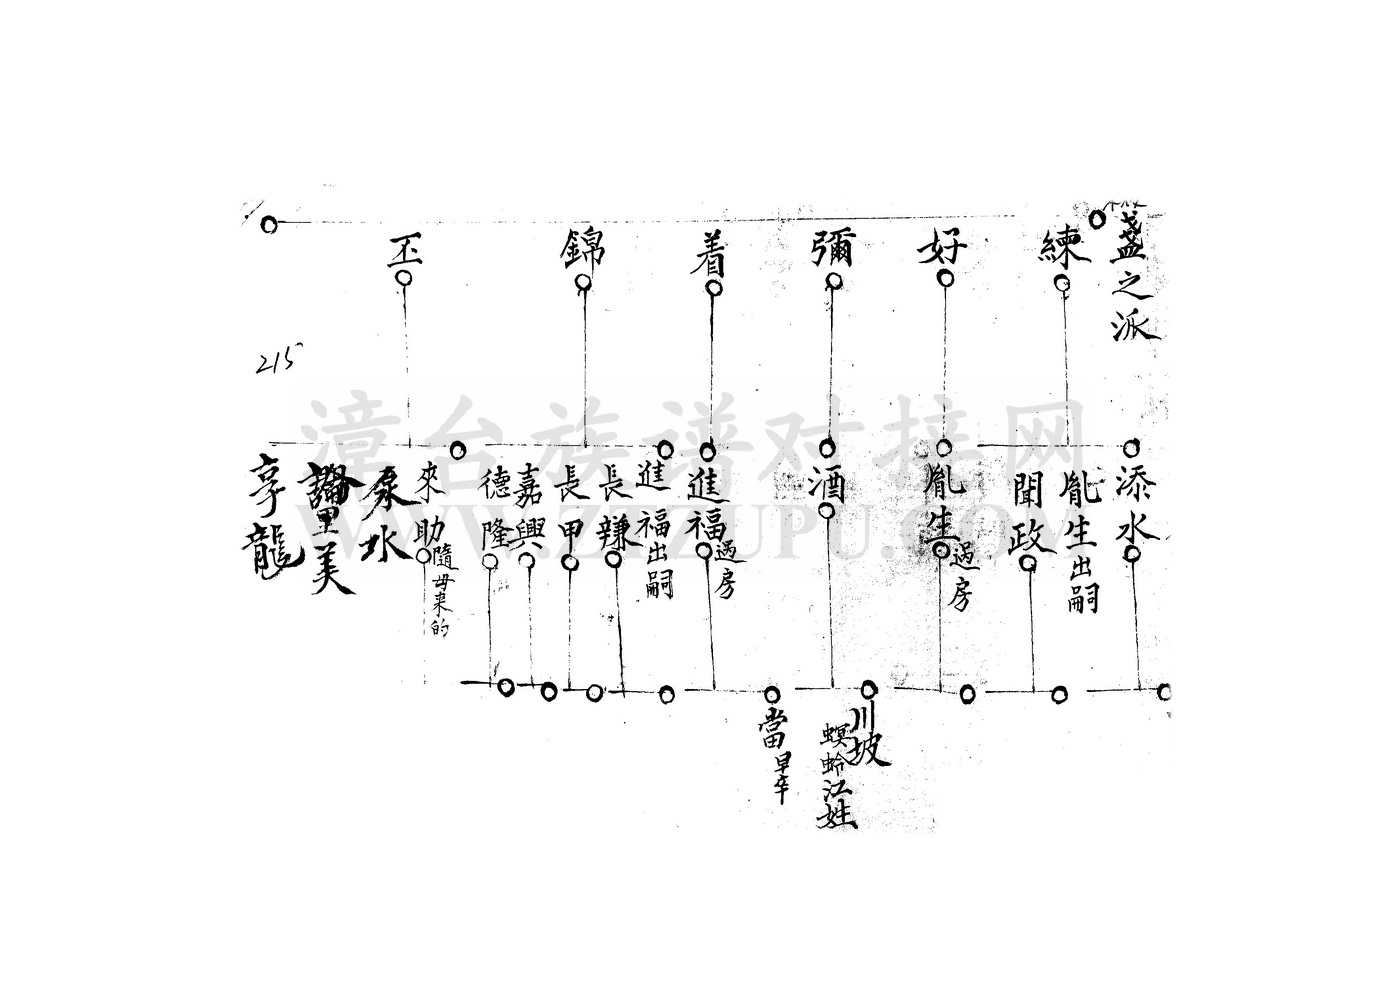 盞之派
練
好
彌
着
錦
丕
215
添水
胤生出嗣
聞政
胤生過房
酒
進福過房
進福出嗣
長謙
長甲
嘉興
德隆
來助隨母来的
泉水
美
享龍
川坡
螟蛉江姓
當早卒
漳台族谱对接网
WWW.ZTZUPU.COM